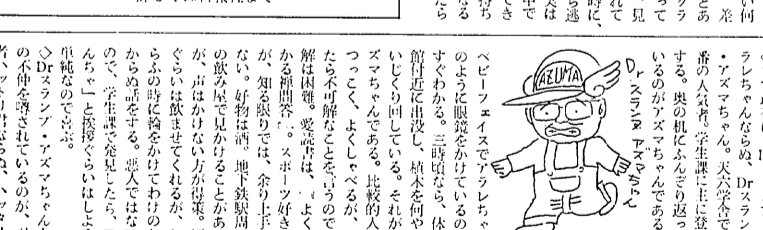 い何
差
とあ
クラ
って
見
れて
時に、
ら逃
実は
中で
でき
持ち
なる
たら
ラレちゃんならぬ、Drスラン
・アズマちゃん。天六学舎で
番の人気者。学生課に主に登
する。奥の机にふんぞり返っ
いるのがアズマちゃんである
AZUMA
Drスランプ アズマちゃん
ベビーフェイスでアラレちゃ
のように眼鏡をかけているの
すぐわかる。三時頃なら、体
館付近に出没し、植木を何や
いじくり回している。それが
ズマちゃんである。比較的人
つっこく、よくしゃべるが、
たら不可解なことを言うので
解は困難。愛読書は、「よく
かる禅問答」。スポーツ好き
が、知る限りでは、余り上手
ない。好物は酒。地下鉄駅周
の飲み屋で見かけることがあ
が、声はかけない方が得策。
ぐらいは飲ませてくれるが、
らふの時に輪をかけてわけの
からぬ話をする。悪人ではな
ので、学生課で発見したら、
んちゃ」と挨拶ぐらいはしよ
単純なので喜ぶ。
◇Drスランプ・アズマちゃん
の不仲を噂されているのが、